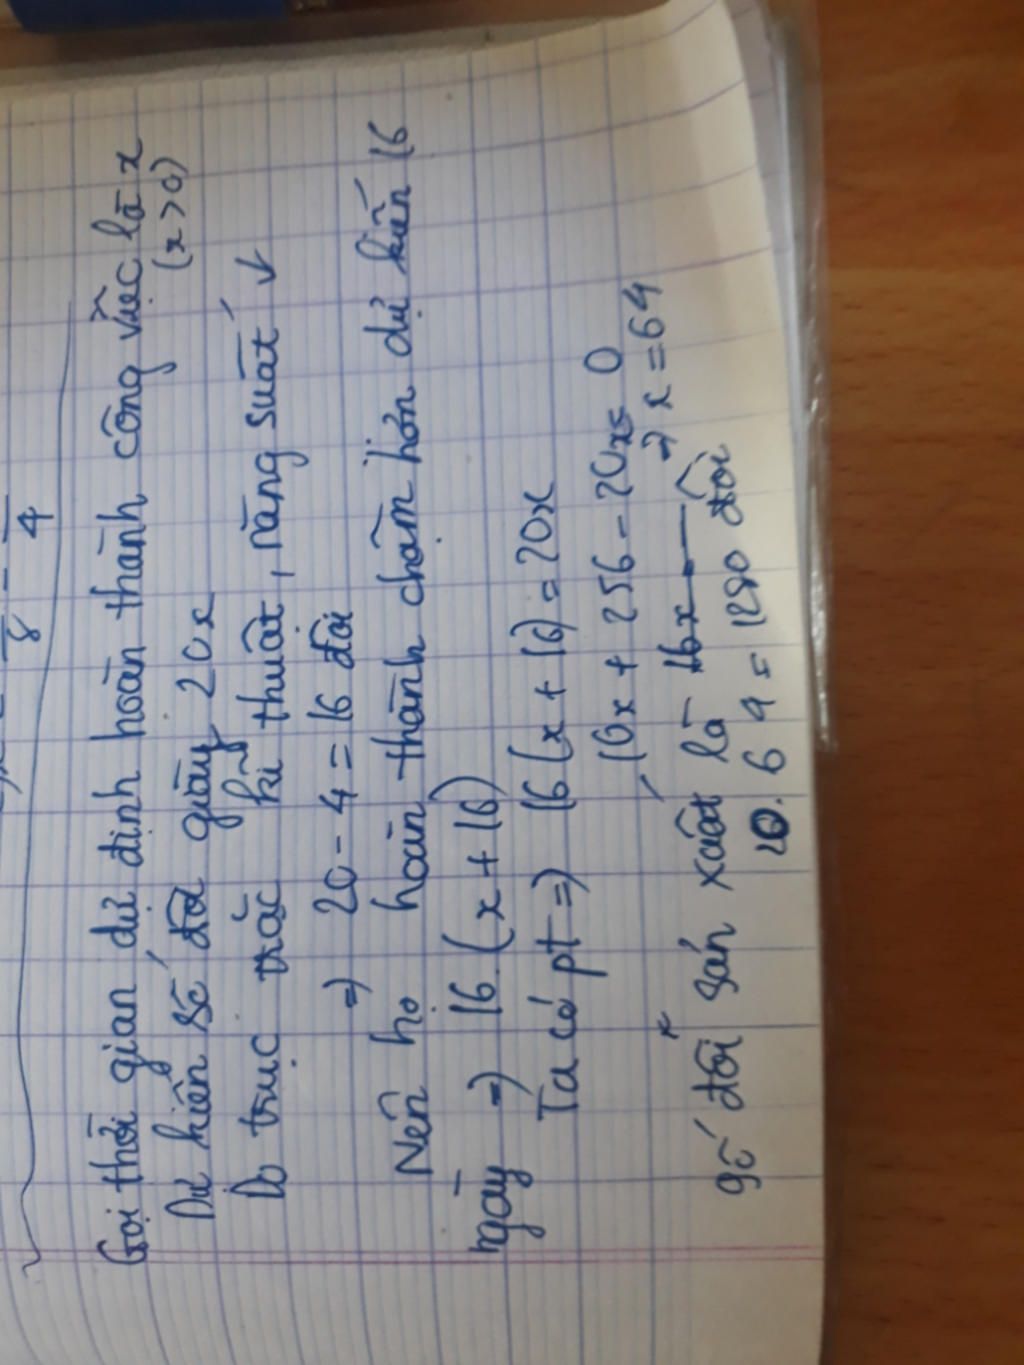 8 4
Gọi thời gian dự định hoàn thành công việc là x
(x > 0)
Dự kiến số đôi giày 20x
Do trục trặc kĩ thuật, năng suất ↓
=) 20 - 4 = 16 đôi
Nên họ hoàn thành chậm hơn dự kiến 16
ngày =) 16.(x + 16)
Ta có pt =) 16(x + 16) = 20x
16x + 256 - 20x = 0
=) x = 64
số đôi sản xuất là 16x
20. 64 = 1280 đôi